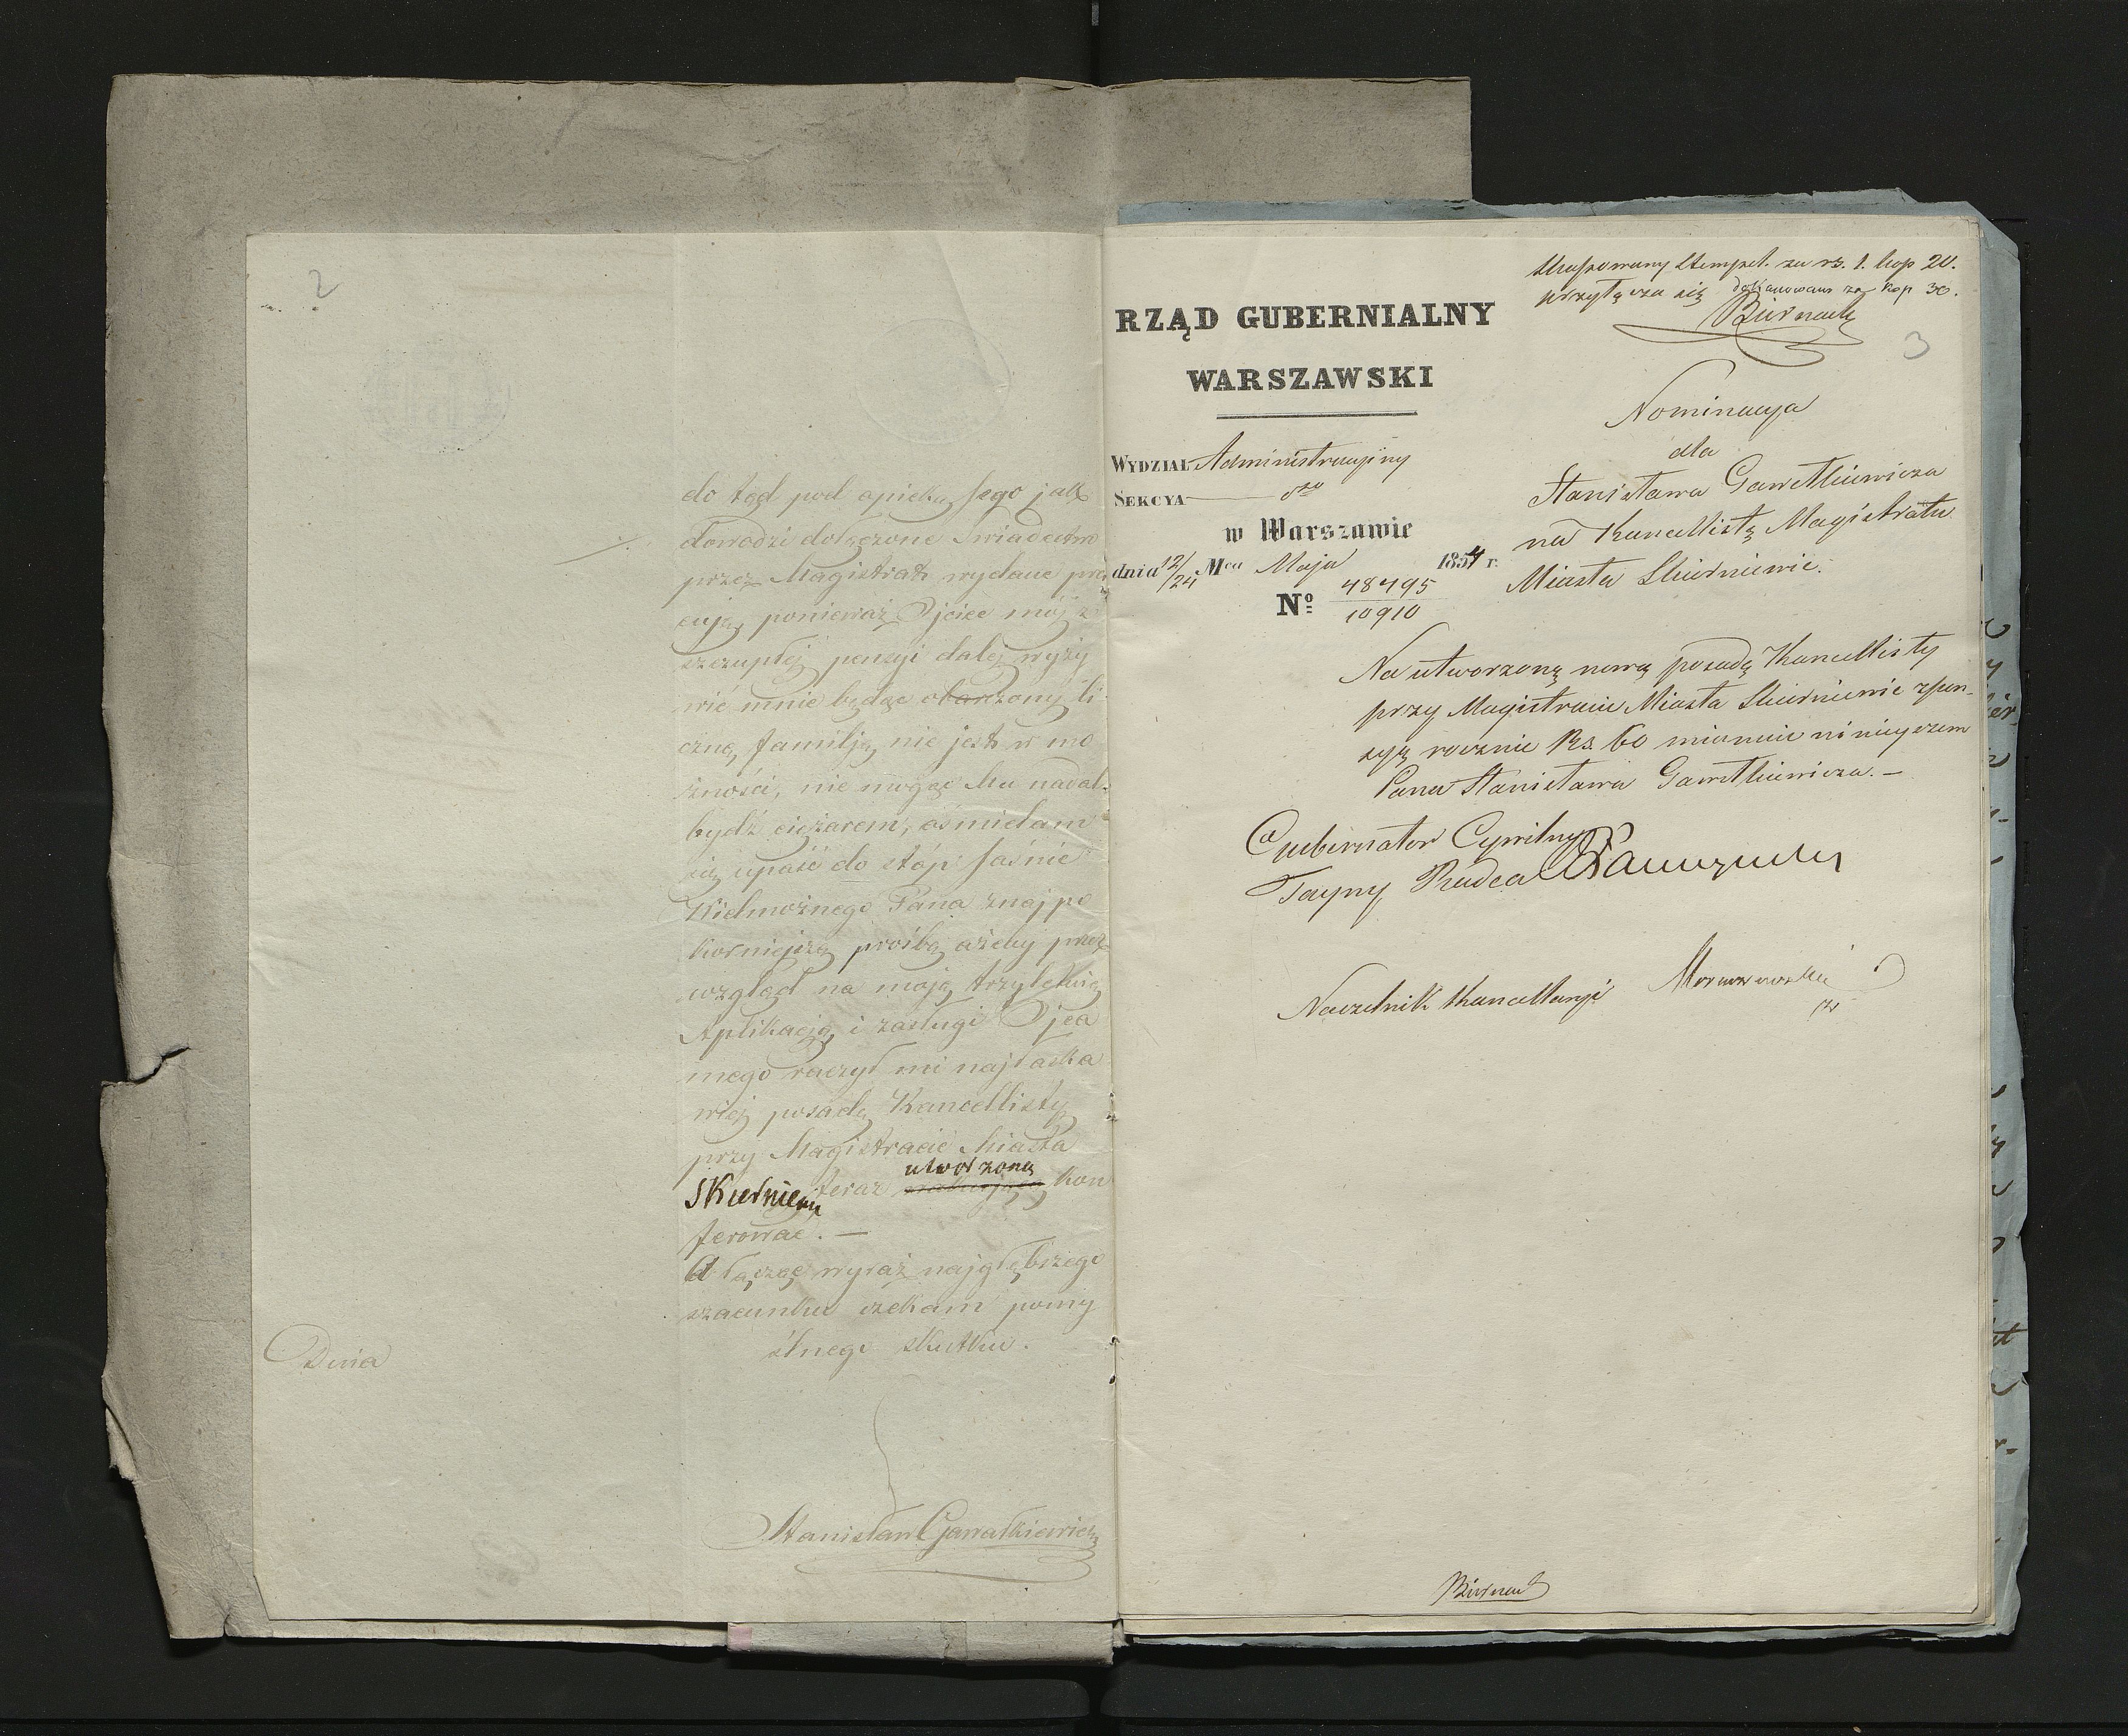 2
do tąd pod opieką Jego jak
dowodzi dołączone Swiadectwo
przez Magistrat wydane pra
cuję, ponieważ Ojciec mój z
szczupłej pensyi dalej wyży
wić mnie będąc obarczony li
czną familją nie jest w mo
żności, nie mogąc Mu nadal
bydź ciężarem, ośmielam
się upaść do stóp Jaśnie
Wielmożnego Pana z najpo
korniejszą prośbą ażeby przez
wzgląd na moją trzyletnią
Aplikacją i zasługi Ojca
mego raczył mi najłaska
wiej posadę Kancellisty
przy Magistracie Miasta
utworzoną
Skierniewic teraz kon
ferować. —
A łącząc wyraz najgłębszego
szacunku czekam pomy
ślnego skutku.
Dnia
Stanisław Gawałkiewicz
Stempel. za rs. 1. kop 20.
przyłącza się za kop 30.
Biernack
3
RZĄD GUBERNIALNY
WARSZAWSKI
WYDZIAŁ Administracyjny
SEKCYA
w Warszawie
dnia 12/24 Mca Maja 1854 r.
No 48495
10910
Nominacya
dla
Stanisława Gawałkiewicza
na Kancellistę Magistratu
Miasta Skierniewic.
Na utworzoną nową posadę Kancellisty
przy Magistracie Miasta Skierniewic z pen-
syą rocznie Rs. 60 mianuie niniejszem
Pana Stanisława Gawałkiewicza. —
Gubernator Cywilny
Tayny Radca
Naczelnik Kancellaryi
Biernack